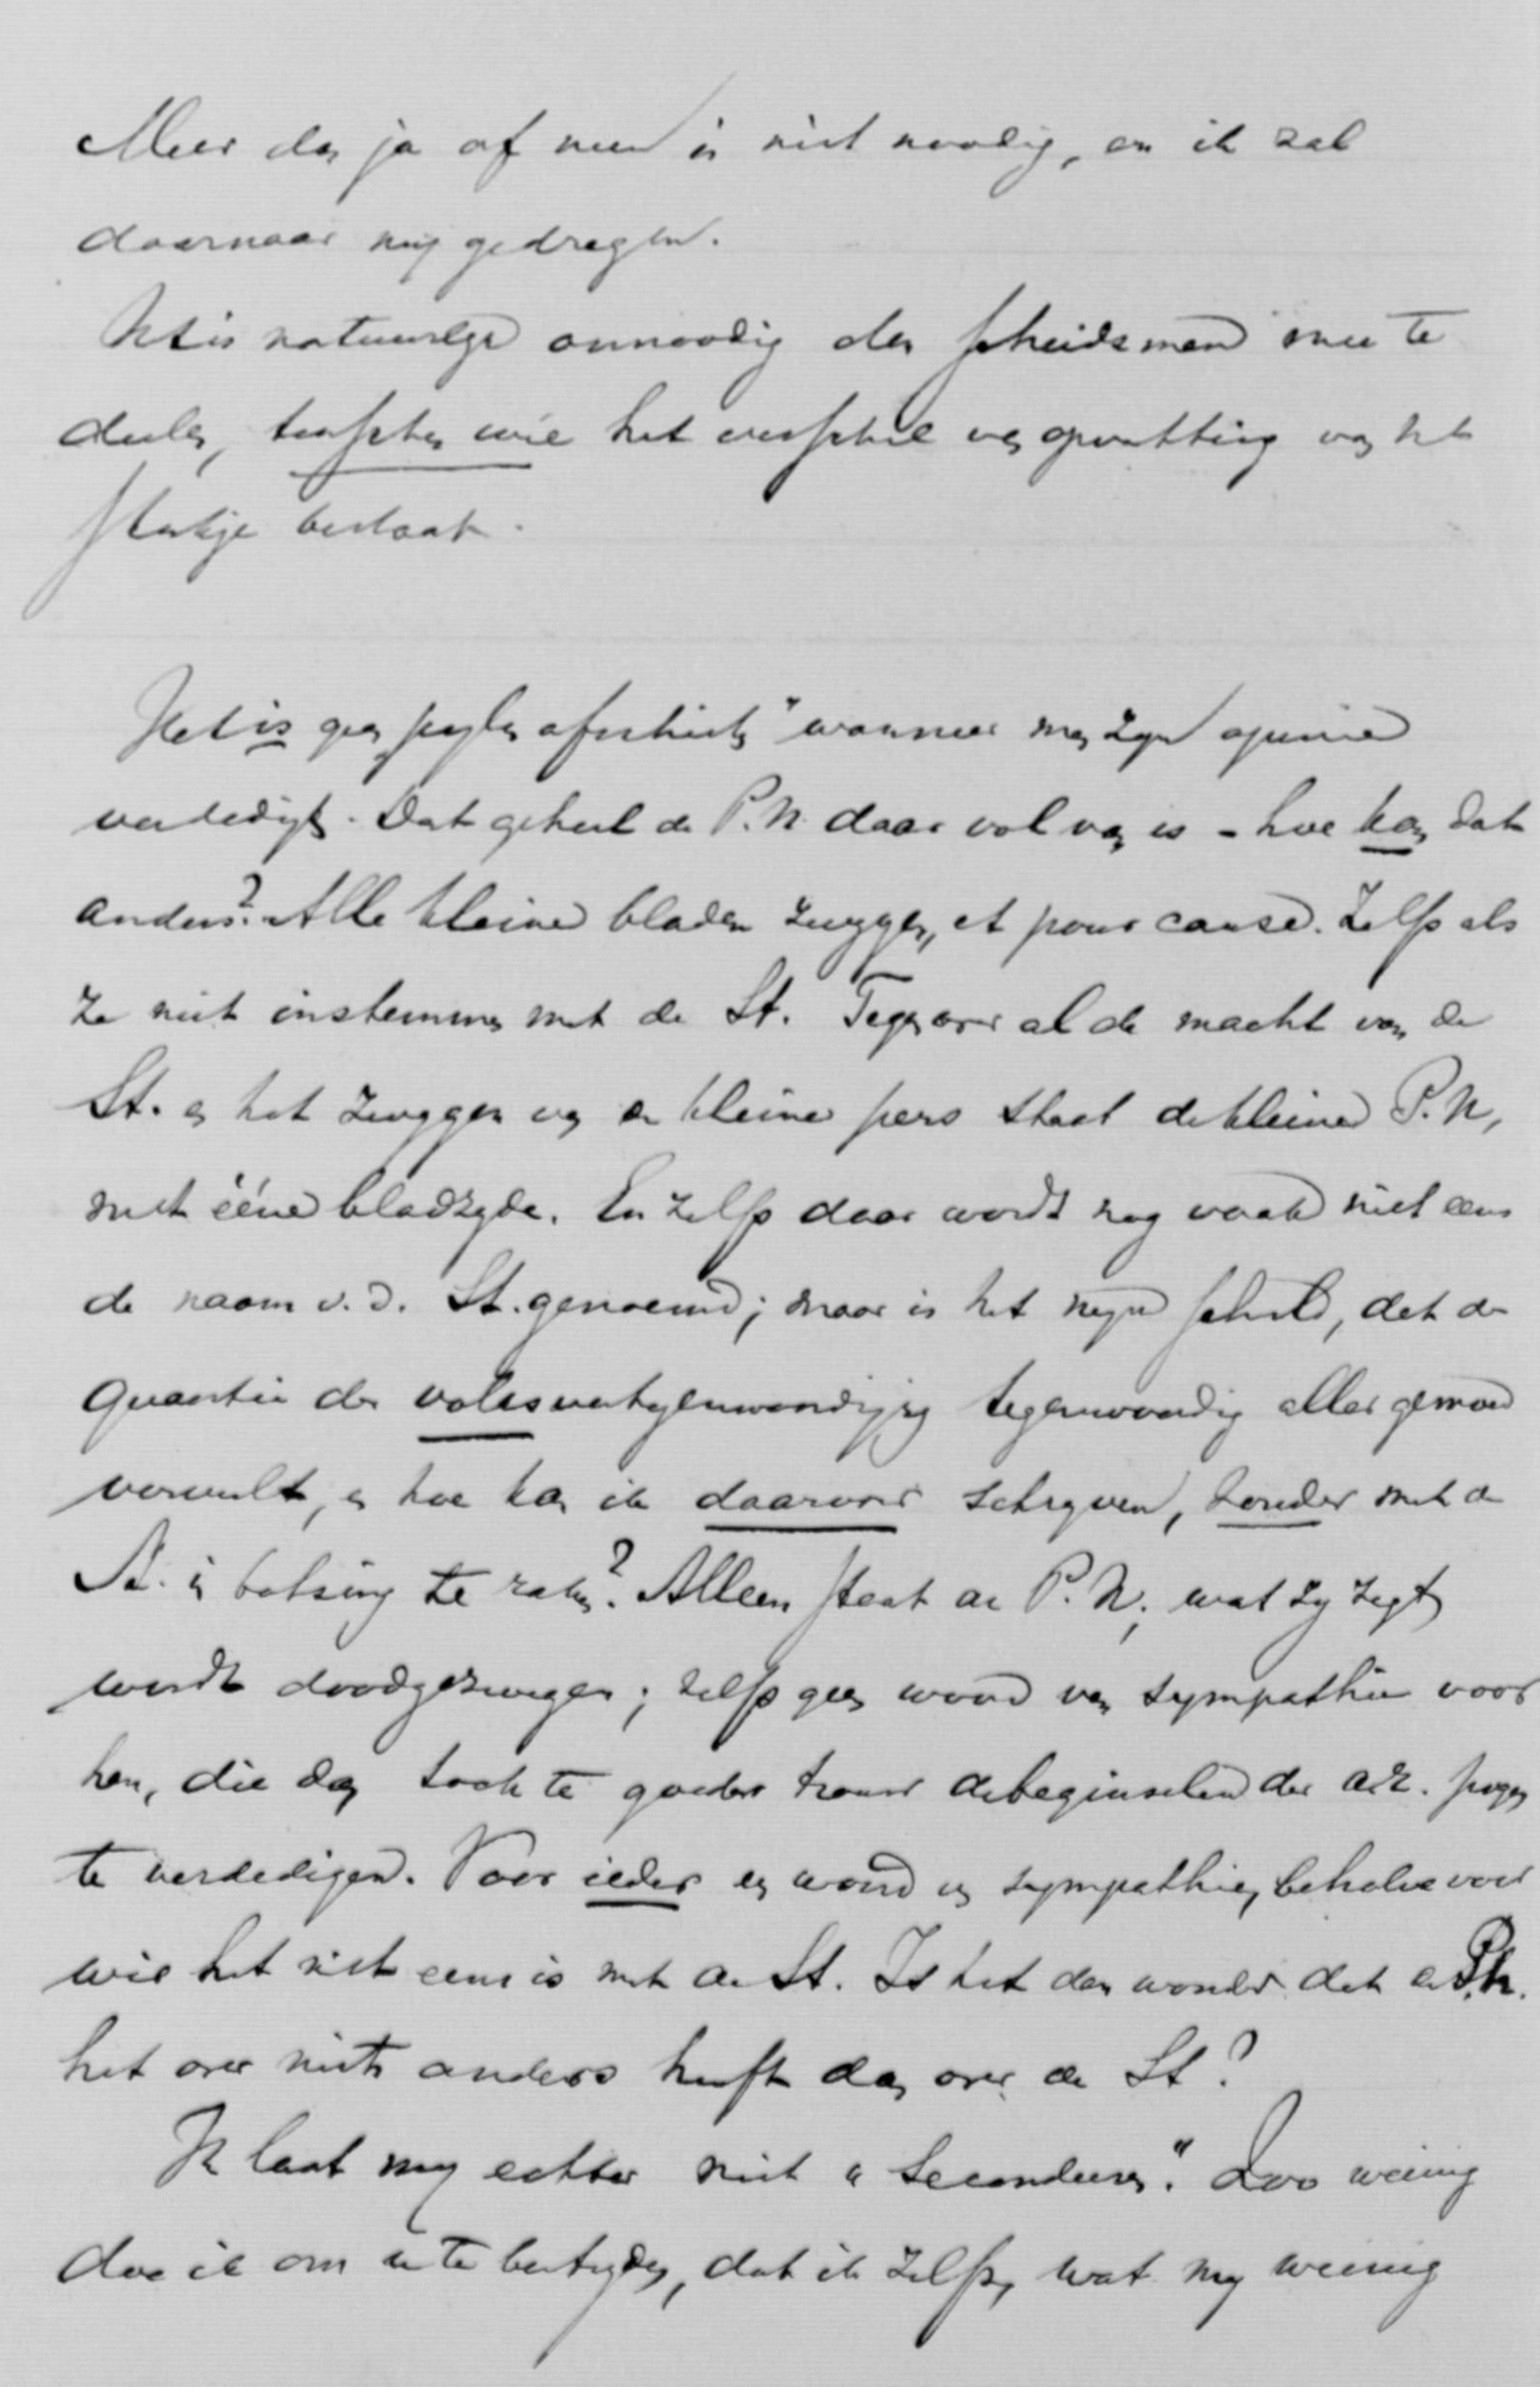 Meer dan ja of neen is niet noodig, en ik zal
daarnaar mij gedragen.
Het is natuurlijk onnoodig den scheidsman mee te
deelen, tusschen wie het verschil van opvatting van het
stukje bestaat.
Het is geen pijlen afschieten" wanneer men zijn opinie
verdedigt. Dat geheel de P.N. daar vol van is - hoe kan dat
anders? Alle kleine bladen zwijgen, et pour cause. Zelfs als
ze niet instemmen met de St. Tegenover al de macht van de
St. en het zwijgen van de kleine pers staat de kleine P.N,
met ééne bladzijde. En zelfs daar wordt nog vaak niet eens
de naam v.d. St. genoemd; maar is het mijn schuld, dat de
quaestie der volksvertegenwoordiging tegenwoordig aller gemoed
vervult, en hoe kan ik daarover schrijven, zonder met de
St. in botsing te raken? Alleen staat de P.N; wat zij zegt
wordt doodgezwegen; zelfs geen woord van sympathie voor
hen, die dan toch te goeder trouw de beginselen der a.r. pogen
te verdedigen. Voor ieder een woord van sympathie, behalve voor
wie het niet eens is met de St. Is het dan wonder dat de P.N.
het over niets anders heeft dan over de St?
Ik laat mij echter niet "secondeeren". Zoo weinig
doe ik om u te bestrijden, dat ik zelfs, wat mij weinig